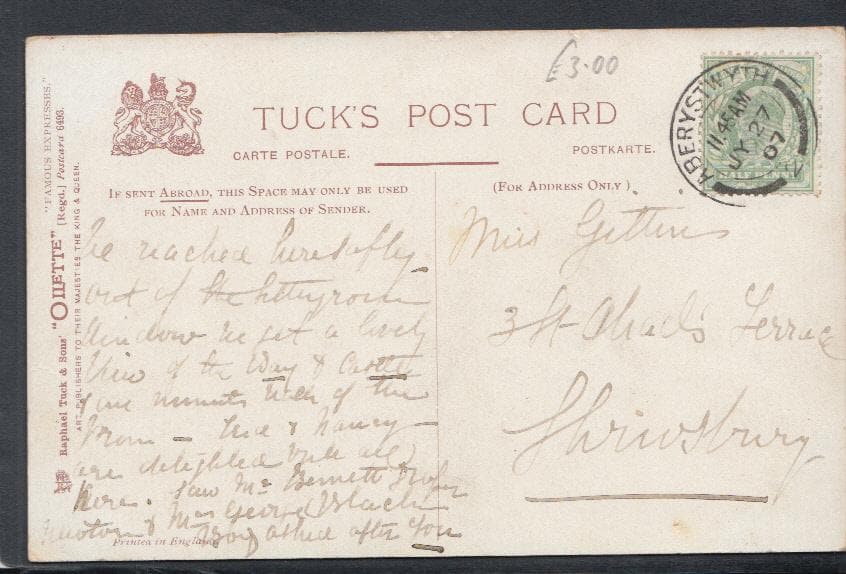 £3.00
TUCK'S POST CARD
CARTE POSTALE.
POSTKARTE.
ABERYSTWYTH
11.45 AM
JY 27
07
HALF PENNY
"FAMOUS EXPRESSES."
[Regd.] Postcard 6493.
Raphael Tuck & Sons' "OILETTE"
ART PUBLISHERS TO THEIR MAJESTIES THE KING & QUEEN.
IF SENT ABROAD, THIS SPACE MAY ONLY BE USED
FOR NAME AND ADDRESS OF SENDER.
(FOR ADDRESS ONLY)
We reached here safely
out of the sittingroom
window we get a lovely
view of the Bay & Castle
five minutes walk of the
Prom - & Nancy
are delighted with all
here. Saw Mr Bennett
Newton & Mrs George Black
asked after you
Miss Gittins
3 St Chad's Terrace
Shrewsbury
Printed in England.